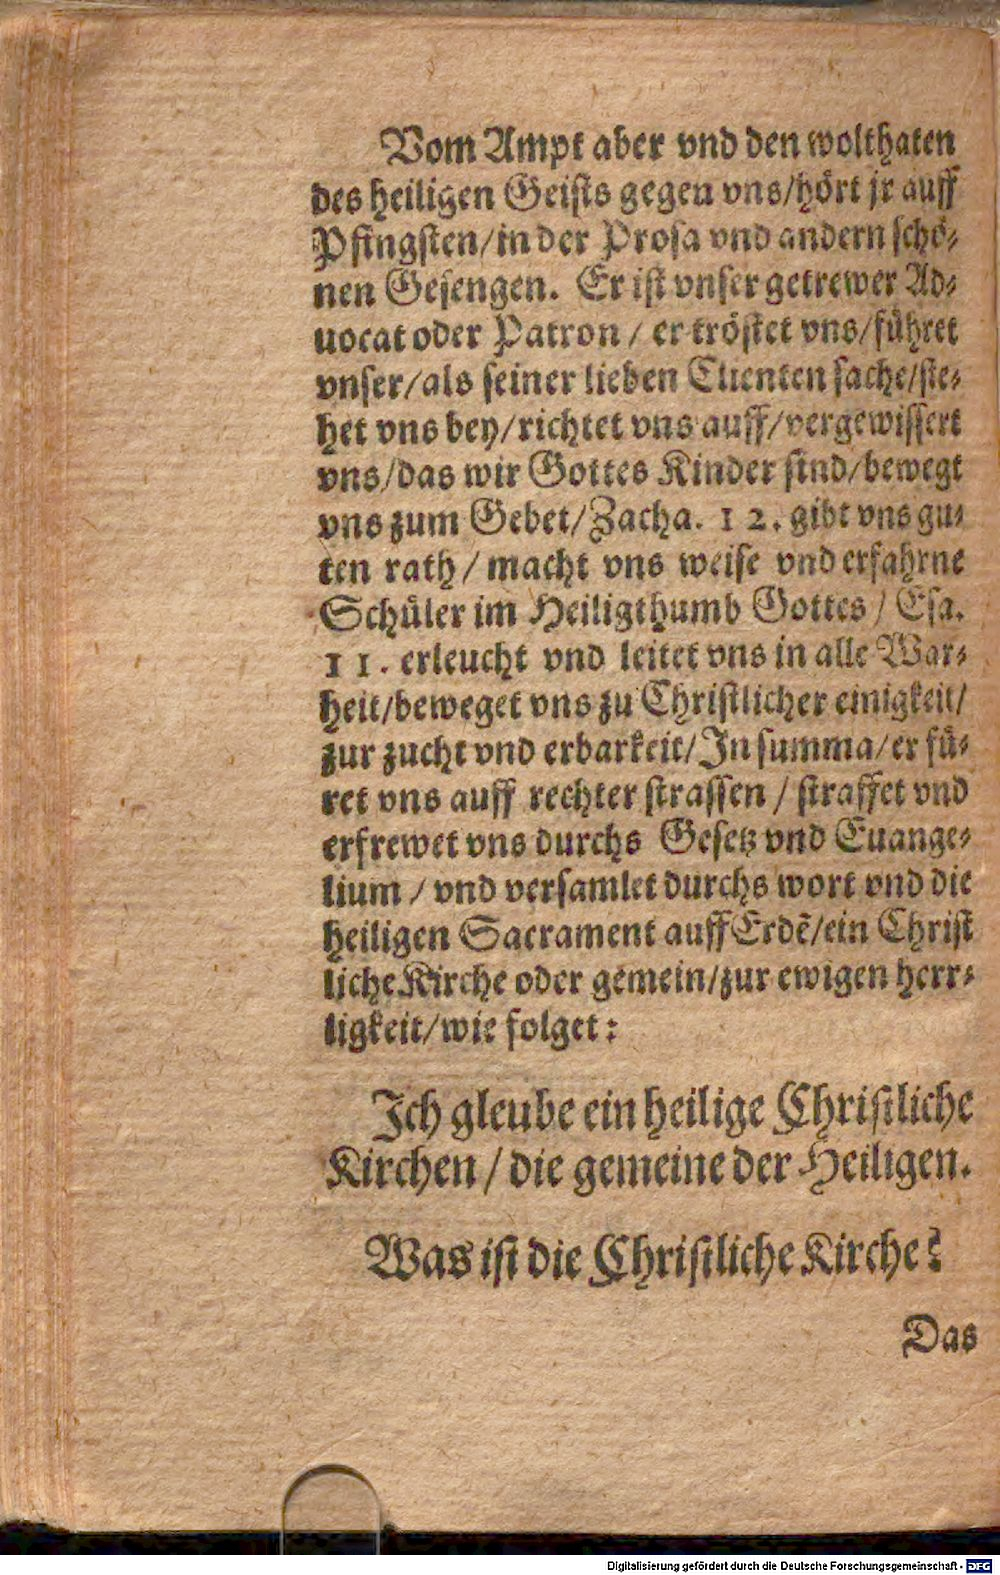 Vom Ampt aber vnd den wolthaten
des heiligen Geists gegen vns/hört jr auff
Pfingsten/in der Prosa vnd andern schö-
nen Gesengen. Er ist vnser getrewer Ad-
uocat oder Patron / er tröstet vns/führet
vnser/als seiner lieben Clienten sache/ste-
het vns bey/richtet vns auff/vergewissert
vns/das wir Gottes Kinder sind/bewegt
vns zum Gebet/Zacha. 12. gibt vns gu-
ten rath/ macht vns weise vnd erfahrne
Schüler im Heiligthumb Gottes / Esa.
11. erleucht vnd leitet vns in alle War-
heit/beweget vns zu Christlicher einigkeit/
zur zucht vnd erbarkeit/In summa/er fü-
ret vns auff rechter strassen / straffet vnd
erfrewet vns durchs Gesetz vnd Euange-
lium / vnd versamlet durchs wort vnd die
heiligen Sacrament auff Erdẽ/ein Christ
liche Kirche oder gemein/zur ewigen herr-
ligkeit/wie folget:
Ich gleube ein heilige Christliche
Kirchen / die gemeine der Heiligen.
Was ist die Christliche Kirche?
Das
Digitalisierung gefördert durch die Deutsche Forschungsgemeinschaft - DFG